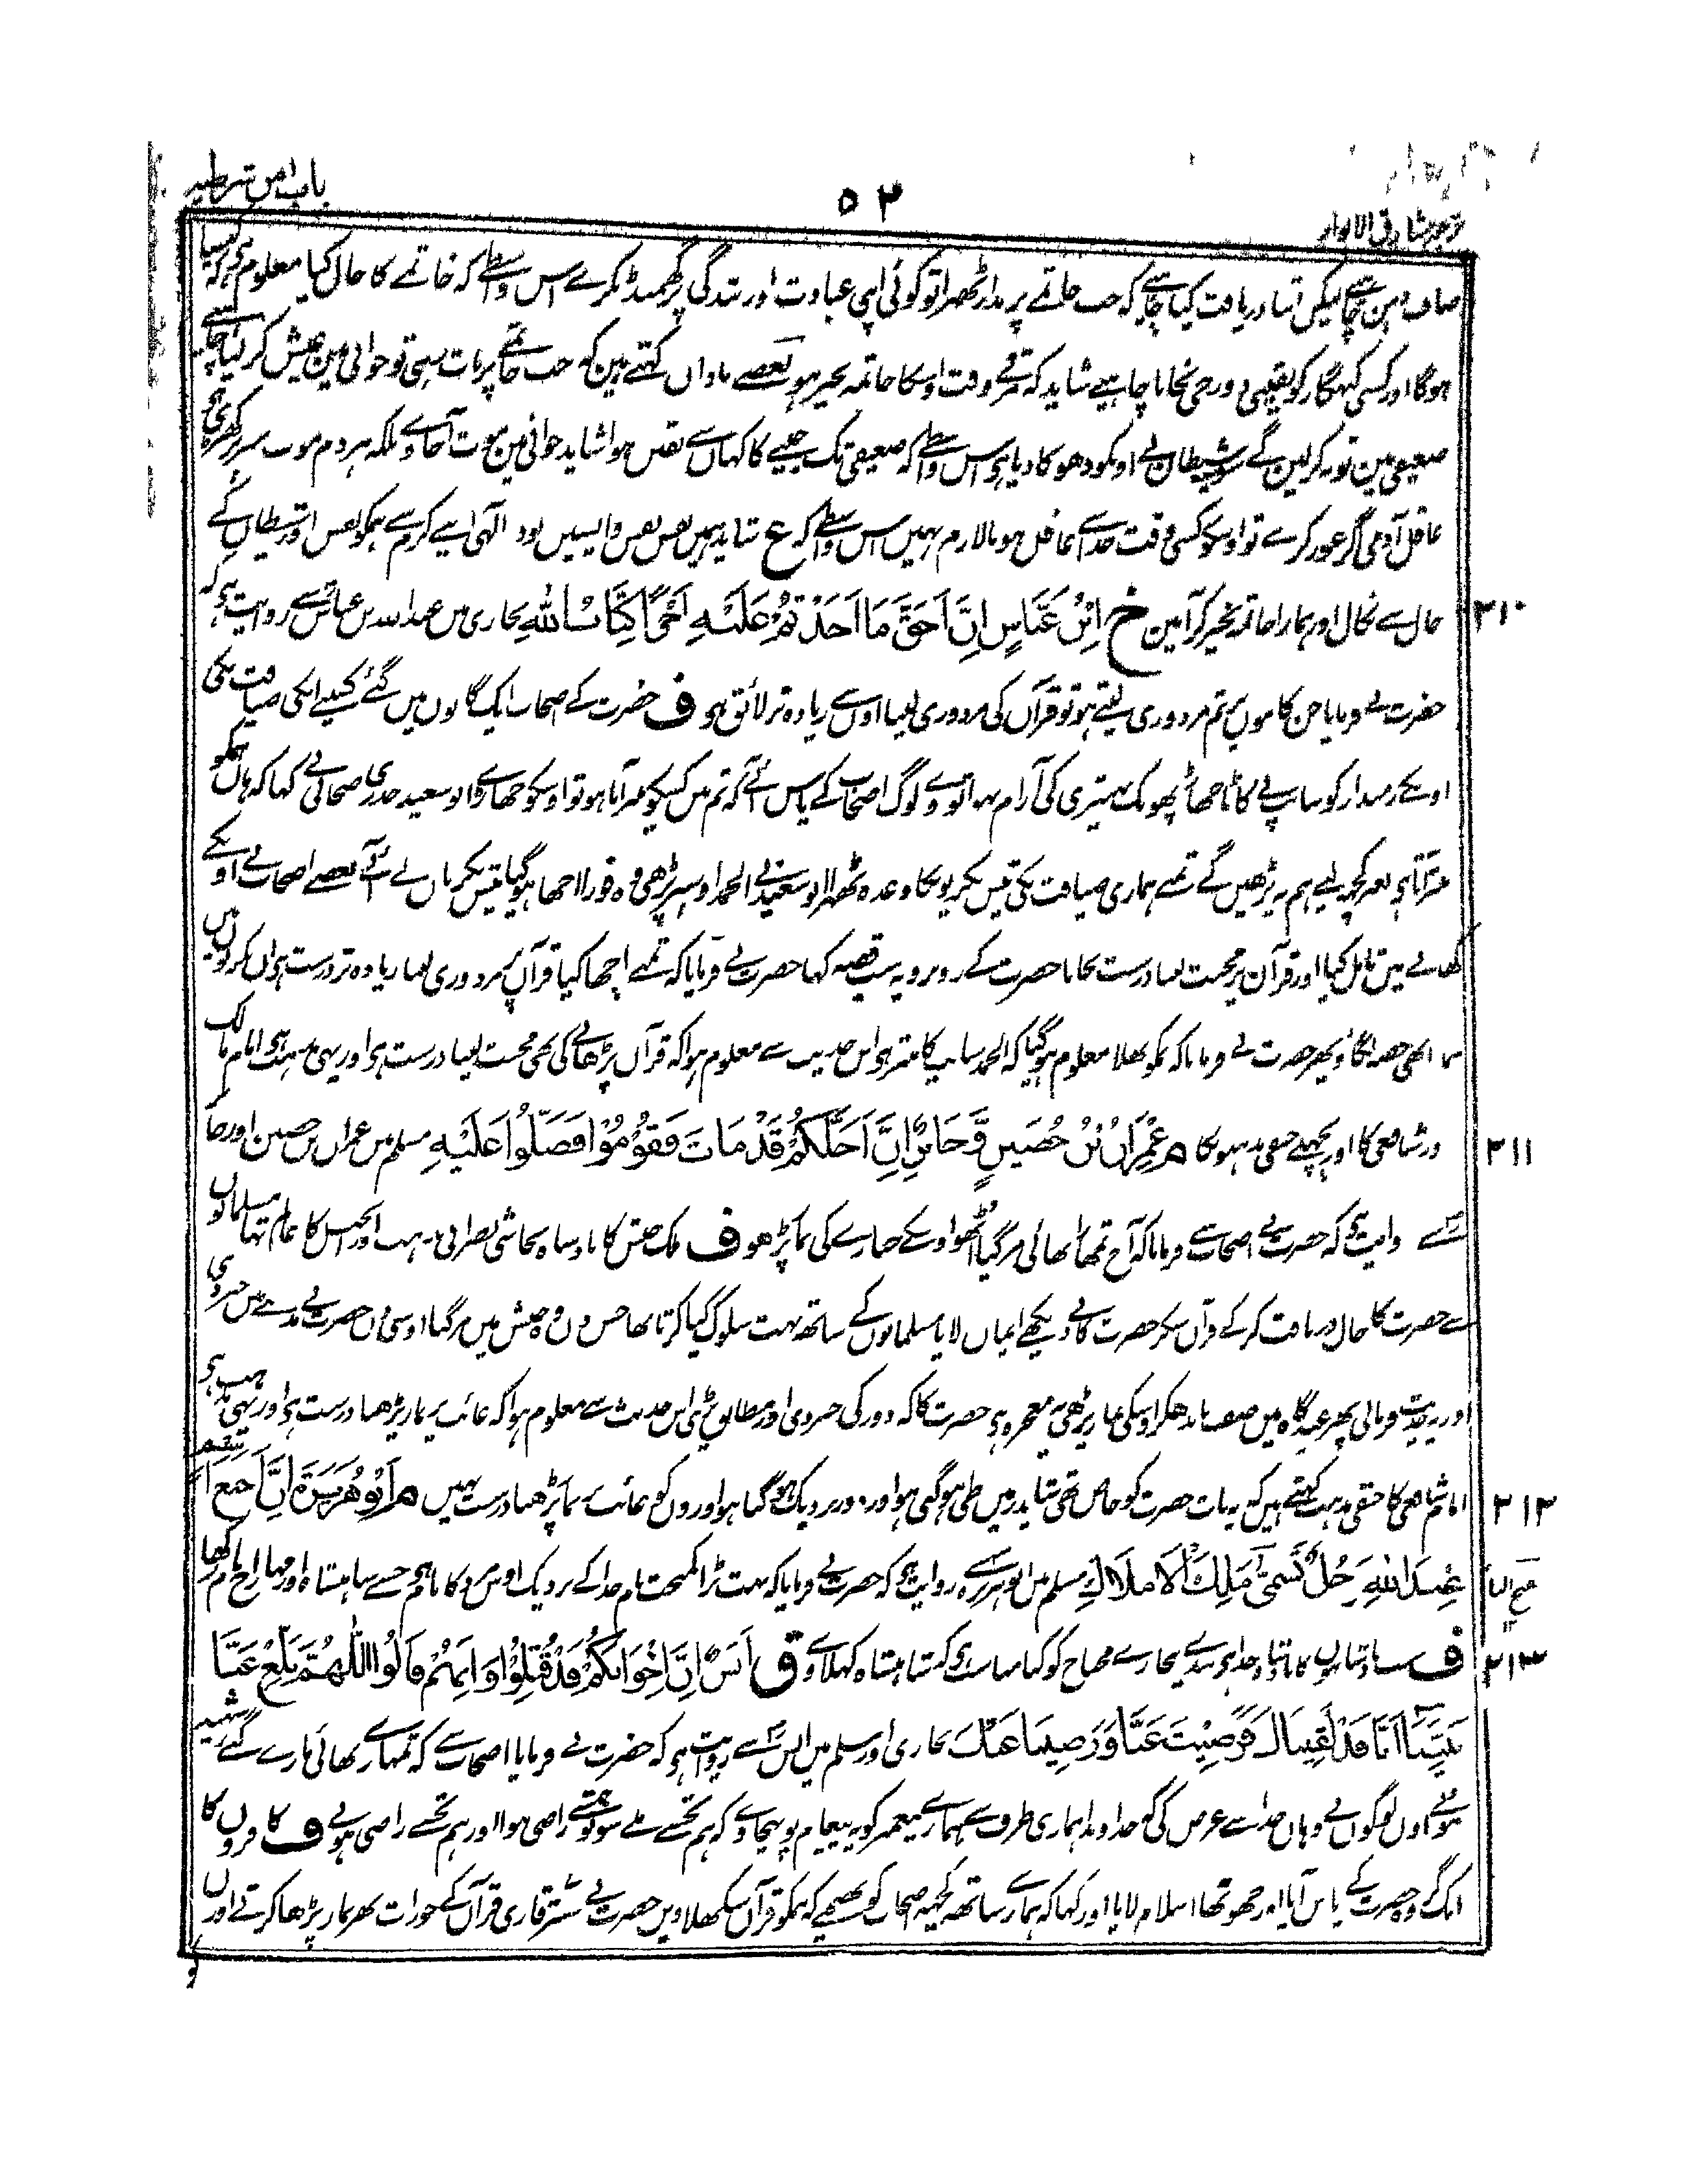 باب امن شرطیہ
۵۲
ترجمہ مشارق الانوار
صاف نہین چاہیے لیکن اتنا دریافت کیا چاہیے کہ جب خاتمے پر مدار ٹھہرا تو کوئی اپنی عبادت اور بندگی پر گھمنڈ نکرے اس واسطے کہ خاتمے کا حال کیا معلوم ہی کہ کیسا
ہوگا اور کسی گنہگار کو یقینی دوزخی نجانا چاہیے شاید کہ مرتے وقت اوسکا خاتمہ بخیر ہو بعضے نادان کہتے ہین کہ جب خاتمے پر بات رہی تو جوانی مین عیش کر لیا چاہیے
ضعیفی مین توبہ کر لین گے سو شیطان نے اونکو دھوکا دیا ہی اس واسطے کہ ضعیفی تک جینے کا کہاں سے یقین ہوا شاید جوانی مین موت آجاوے بلکہ ہر دم موت سر پر کھڑی ہی
عاقل آدمی اگر غور کرے تو اوسکو کسی وقت خدا سے غافل ہونا لازم نہیں اس واسطے کہ ع شاید ہمیں نفس نفس واپسیں بود الٰہی اپنے کرم سے ہمکو نفس اور شیطان کے
جال سے نکال اور ہمارا خاتمہ بخیر کر آمین خ اِبْنُ عَبَّاسٍ اِنَّ اَحَقَّ مَا اَخَذْتُمْ عَلَيْهِ اَجْرًا كِتَابُ اللّٰهِ بخاری میں عبداللہ بن عباسؓ سے روایت ہی کہ
۲۱۰
حضرت نے فرمایا جن کاموں پر تم مزدوری لیتے ہو تو قرآن کی مزدوری لینا اون سے زیادہ تر لائق ہی ف حضرت کے اصحاب ایک گانوں میں گئے کسینے اونکی ضیافت نکی
اونکے زمیدار کو سانپ نے کاٹا جھاڑ پھونک بہتیری کی آرام نہوا تو وے لوگ اصحاب کے پاس آئے کہ تم میں کسیکو منتر آتا ہو تو اوسکو جھاڑے ابو سعید خدری صحابی نے کہا کہ ہاں ہمکو
منتر آتا ہی بغیر کچھ لیے ہم نہ پڑھیں گے تمنے ہماری ضیافت نکی تیس بکریونکا وعدہ ٹھہرا ابو سعیدؓ نے الحمد اوسپر پڑھی وہ فوراً اچھا ہوگیا تیس بکریاں لے آئے بعضے اصحاب نے اونکے
کھانے میں تامل کیا اور قرآن پر محنت لینا درست نجانا حضرت کے روبرو یہ سب قصہ کہا حضرت نے فرمایا کہ تمنے اچھا کیا قرآن پر مزدوری لینا زیادہ تر درست ہی ان بکریوں میں
میرا بھی حصہ لگاؤ پھر حضرت نے فرمایا کہ تمکو بھلا معلوم ہوگیا کہ الحمد سانپ کا منتر ہی اس حدیث سے معلوم ہوا کہ قرآن پڑھانے کی بھی محنت لینا درست ہی اور یہی مذہب ہی امام مالک
اور شافعی کا اور پچھلے حنفی مذہبوں کا م عِمْرَانُ بْنُ حُصَيْنٍ وَّجَابِرٌ اِنَّ اَخًا لَّكُمْ قَدْ مَاتَ فَقُوْمُوْا فَصَلُّوْا عَلَيْهِ مسلم میں عمران بن حصین اور جابر
۲۱۱
سے روایت ہی کہ حضرت نے اصحاب سے فرمایا کہ آج تمھارا بھائی مر گیا اُٹھو اوسکے جنازے کی نماز پڑھو ف ملک حبش کا بادشاہ نجاشی نصرانی مذہب اور انجیل کا عالم تھا مسلمانوں
سے حضرت کا حال دریافت کر کے قرآن سنکر حضرت کا بے دیکھے ایمان لایا مسلمانوں کے ساتھ بہت سلوک کیا کرتا تھا جس دن وہ حبش میں مر گیا اوسی دن حضرت نے مدینے میں خبر دی
اور یہ حدیث فرمائی پھر عیدگاہ میں صف باندھکر اوسکی نماز پڑھی یہ معجزہ ہی حضرت کا کہ دور کی خبر دی اور مطابق پڑی اس حدیث سے معلوم ہوا کہ غائب پر نماز پڑھنا درست ہی اور یہی مذہب ہی
امام شافعی کا حنفی مذہب کہتے ہیں کہ یہ بات حضرت کو خاص تھی شاید زمیں طی ہوگئی ہو اور دور نزدیک ہوگیا ہو اوروں کو غائب پر نماز پڑھنا درست نہیں م اَبُوْ هُرَيْرَةَ اِنَّ اَخْنَعَ اسْمٍ
۲۱۲
عِنْدَ اللّٰهِ رَجُلٌ تَسَمّٰى مَلِكَ الْاَمْلَاكِ مسلم میں ابو ہریرہؓ سے روایت ہی کہ حضرت نے فرمایا کہ بہت بڑا کمبخت نام خدا کے نزدیک اوس مرد کا نام ہی جسے شاہنشاہ اور مہاراج نام رکھا
ف بادشاہوں کا بادشاہ خدا ہی بندے بیچارے محتاج کو کیا مناسب ہی کہ شاہنشاہ کہلاوے ق اَنَسٌ اِنَّ اِخْوَانَكُمْ قَدْ قُتِلُوْا وَاِنَّهُمْ قَالُوْا اللّٰهُمَّ بَلِّغْ عَنَّا
۲۱۳
نَبِيَّنَا اَنَّا قَدْ لَقِيْنَاكَ فَرَضِيْتَ عَنَّا وَرَضِيْنَا عَنْكَ بخاری اور مسلم میں انسؓ سے روایت ہی کہ حضرت نے فرمایا اصحاب سے کہ تمہارے بھائی مارے گئے شہید
ہوئے اون لوگوں نے وہاں خدا سے عرض کی کہ خداوندا ہماری طرف سے ہمارے پیغمبر کو یہ پیغام پہونچا دے کہ ہم تجھسے ملے سو تو ہمسے راضی ہوا اور ہم تجھسے راضی ہوئے ف کافروں کا
ایک گروہ حضرت کے پاس آیا اور جھوٹھا اسلام لایا اور کہا کہ ہمارے ساتھ کچھ اصحاب کو بھیجیے کہ ہمکو قرآن سکھلاویں حضرت نے ستر قاری قرآن کے جو رات بھر نماز پڑھا کرتے اور دن